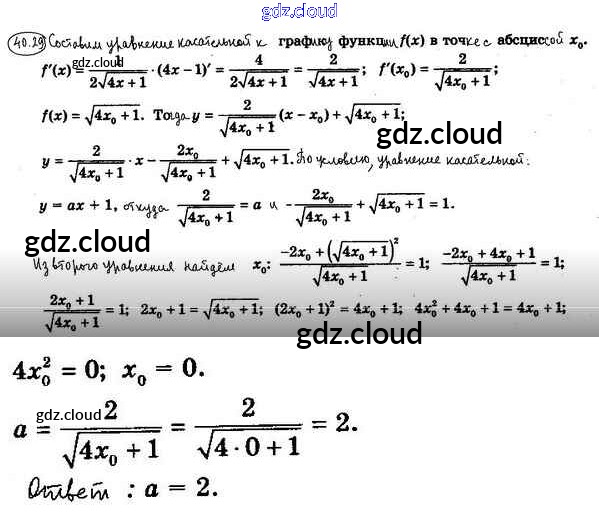 gdz.cloud
40.29 Составим уравнение касательной к графику функции f(x) в точке с абсциссой x₀.
gdz.cloud
f′(x) = 1/(2√(4x + 1)) · (4x − 1)′ = 4/(2√(4x + 1)) = 2/√(4x + 1); f′(x₀) = 2/√(4x₀ + 1);
f(x) = √(4x₀ + 1). Тогда y = 2/√(4x₀ + 1) (x − x₀) + √(4x₀ + 1);
gdz.cloud
y = 2/√(4x₀ + 1) · x − 2x₀/√(4x₀ + 1) + √(4x₀ + 1). По условию, уравнение касательной:
y = ax + 1, откуда 2/√(4x₀ + 1) = a и −2x₀/√(4x₀ + 1) + √(4x₀ + 1) = 1.
gdz.cloud
Из второго уравнения найдём x₀: (−2x₀ + (√(4x₀ + 1))²)/√(4x₀ + 1) = 1; (−2x₀ + 4x₀ + 1)/√(4x₀ + 1) = 1;
gdz.cloud
(2x₀ + 1)/√(4x₀ + 1) = 1; 2x₀ + 1 = √(4x₀ + 1); (2x₀ + 1)² = 4x₀ + 1; 4x₀² + 4x₀ + 1 = 4x₀ + 1;
gdz.cloud
4x₀² = 0; x₀ = 0.
gdz.cloud
a = 2/√(4x₀ + 1) = 2/√(4 · 0 + 1) = 2.
Ответ : a = 2.
gdz.cloud